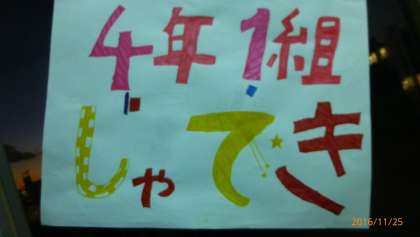 4年1組
じゃてき
2016/11/25